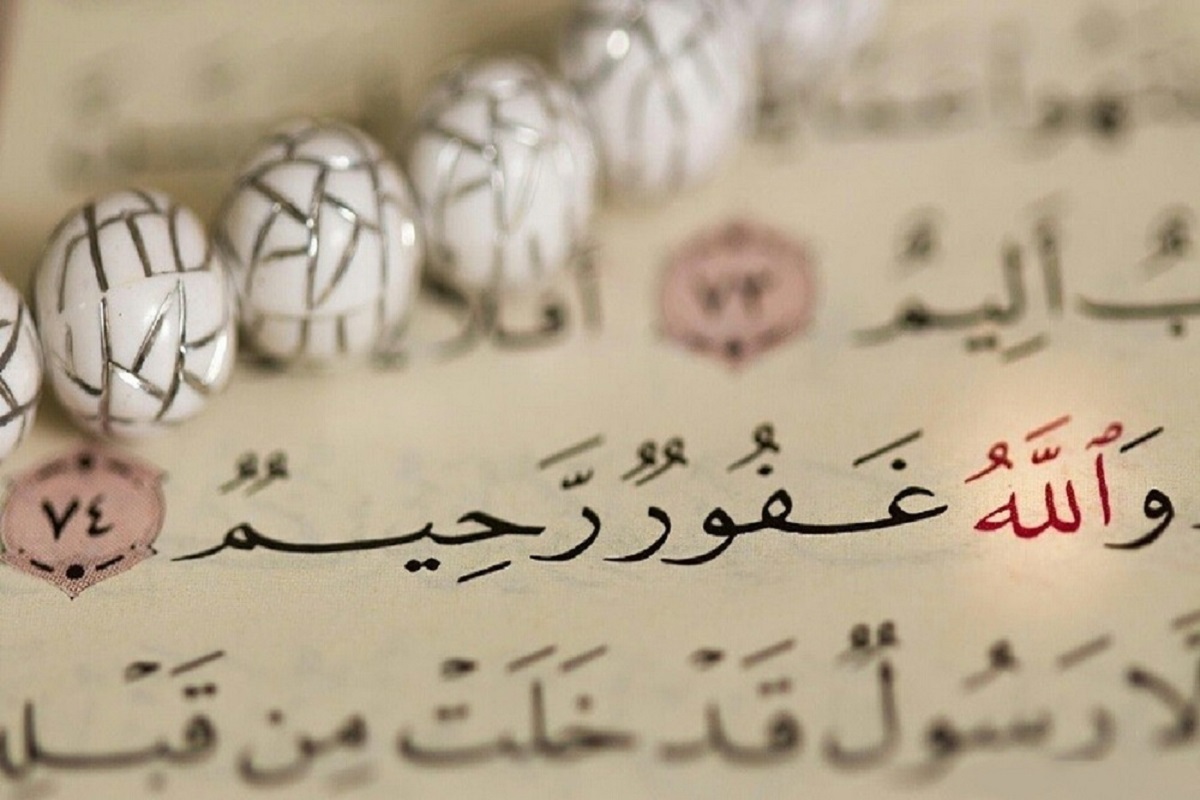 بٌ أَلِيمٌ ٧٣ أَفَلَا
وَٱللَّهُ غَفُورٌ رَّحِيمٌ ٧٤
لَّا رَسُولٌ قَدْ خَلَتْ مِن قَبْلِهِ